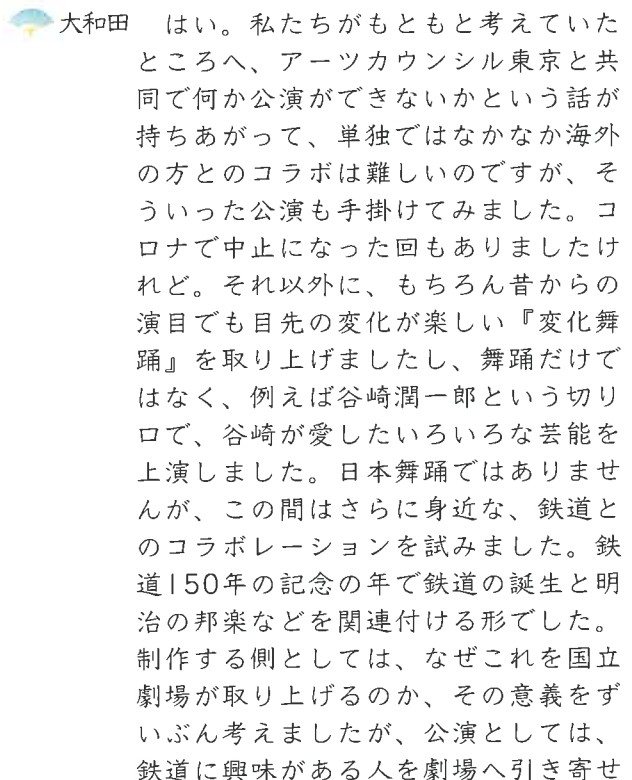 大和田　はい。私たちがもともと考えていた
ところへ、アーツカウンシル東京と共
同で何か公演ができないかという話が
持ちあがって、単独ではなかなか海外
の方とのコラボは難しいのですが、そ
ういった公演も手掛けてみました。コ
ロナで中止になった回もありましたけ
れど。それ以外に、もちろん昔からの
演目でも目先の変化が楽しい『変化舞
踊』を取り上げましたし、舞踊だけで
はなく、例えば谷崎潤一郎という切り
口で、谷崎が愛したいろいろな芸能を
上演しました。日本舞踊ではありませ
んが、この間はさらに身近な、鉄道と
のコラボレーションを試みました。鉄
道150年の記念の年で鉄道の誕生と明
治の邦楽などを関連付ける形でした。
制作する側としては、なぜこれを国立
劇場が取り上げるのか、その意義をず
いぶん考えましたが、公演としては、
鉄道に興味がある人を劇場へ引き寄せ